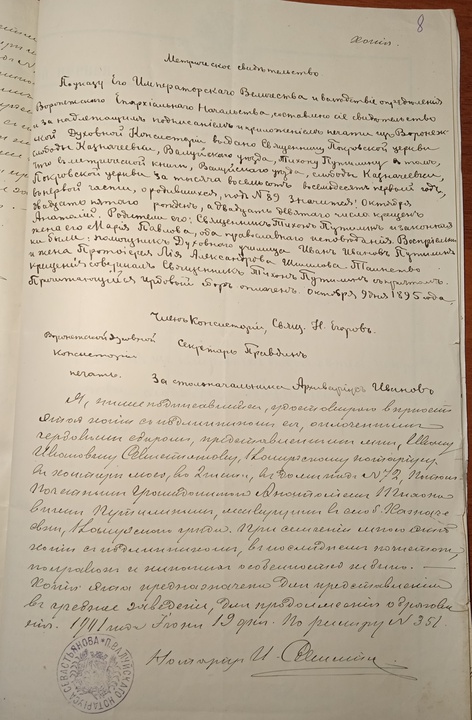 8
Копія.
Метрическое свидѣтельство
По указу Его Императорскаго Величества и вслѣдствіе опредѣленія
Воронежскаго Епархіальнаго Начальства, составлено сіе свидѣтельство
и за надлежащимъ подписаніемъ и приложеніемъ печати изъ Воронеж-
ской Духовной Консисторіи выдано Священнику Покровской церкви
слободы Казначеевки, Валуйскаго уѣзда, Тихону Путилину о томъ,
что въ метрической книгѣ, Валуйскаго уѣзда, слободы Казначеевки,
Покровской церкви за тысяча восемьсотъ восемьдесятъ первый годъ,
въ первой части, о родившихся, подъ № 39 значится: Октября
двадцать пятаго рожденъ, а двадцать девятаго число крещенъ
Анатолій. Родители его: Священникъ Тихонъ Путилинъ и законная
жена его Марія Павлова, оба православнаго исповѣданія. Воспріемни-
ки были: помощникъ Духовнаго училища Иванъ Ивановъ Путилинъ
и жена Протоіерея Лія Александрова Шишлова. Таинство
крещенія совершалъ Священникъ Тихонъ Путилинъ съ причтомъ.
Причитающійся гербовый сборъ оплаченъ. Октября 9 дня 1895 года.
Членъ Консисторіи, Свящ. Н. Егоровъ.
Воронежской Духовной
Консисторіи
печать.
Секретарь Правдинъ
За столоначальника Архиваріусъ Ивановъ
Я, нижеподписавшійся, удостовѣряю вѣрность
этой копіи съ подлинникомъ ея, оплаченнымъ
гербовымъ сборомъ, представленнымъ мнѣ, Ивану
Ивановичу Севастьянову, Валуйскому нотаріусу,
въ конторѣ моей, во 2 части, въ домѣ подъ № 72, Потом.
Почетнымъ Гражданиномъ Анатоліемъ Тихоно-
вичемъ Путилинымъ, живущимъ въ слоб. Казначе-
евкѣ, Валуйскаго уѣзда. При сличеніи мною этой
копіи съ подлинникомъ, въ послѣднемъ почистокъ,
поправокъ и никакихъ особенностей не было. —
Копія эта предназначена для представленія
въ учебное заведеніе, для продолженія образова-
нія. 1911 года Іюня 19 дня. По реестру № 351.
Нотаріусъ И. Севастьян
ПЕЧ. ВАЛУЙСКАГО НОТАРІУСА СЕВАСТЬЯНОВА